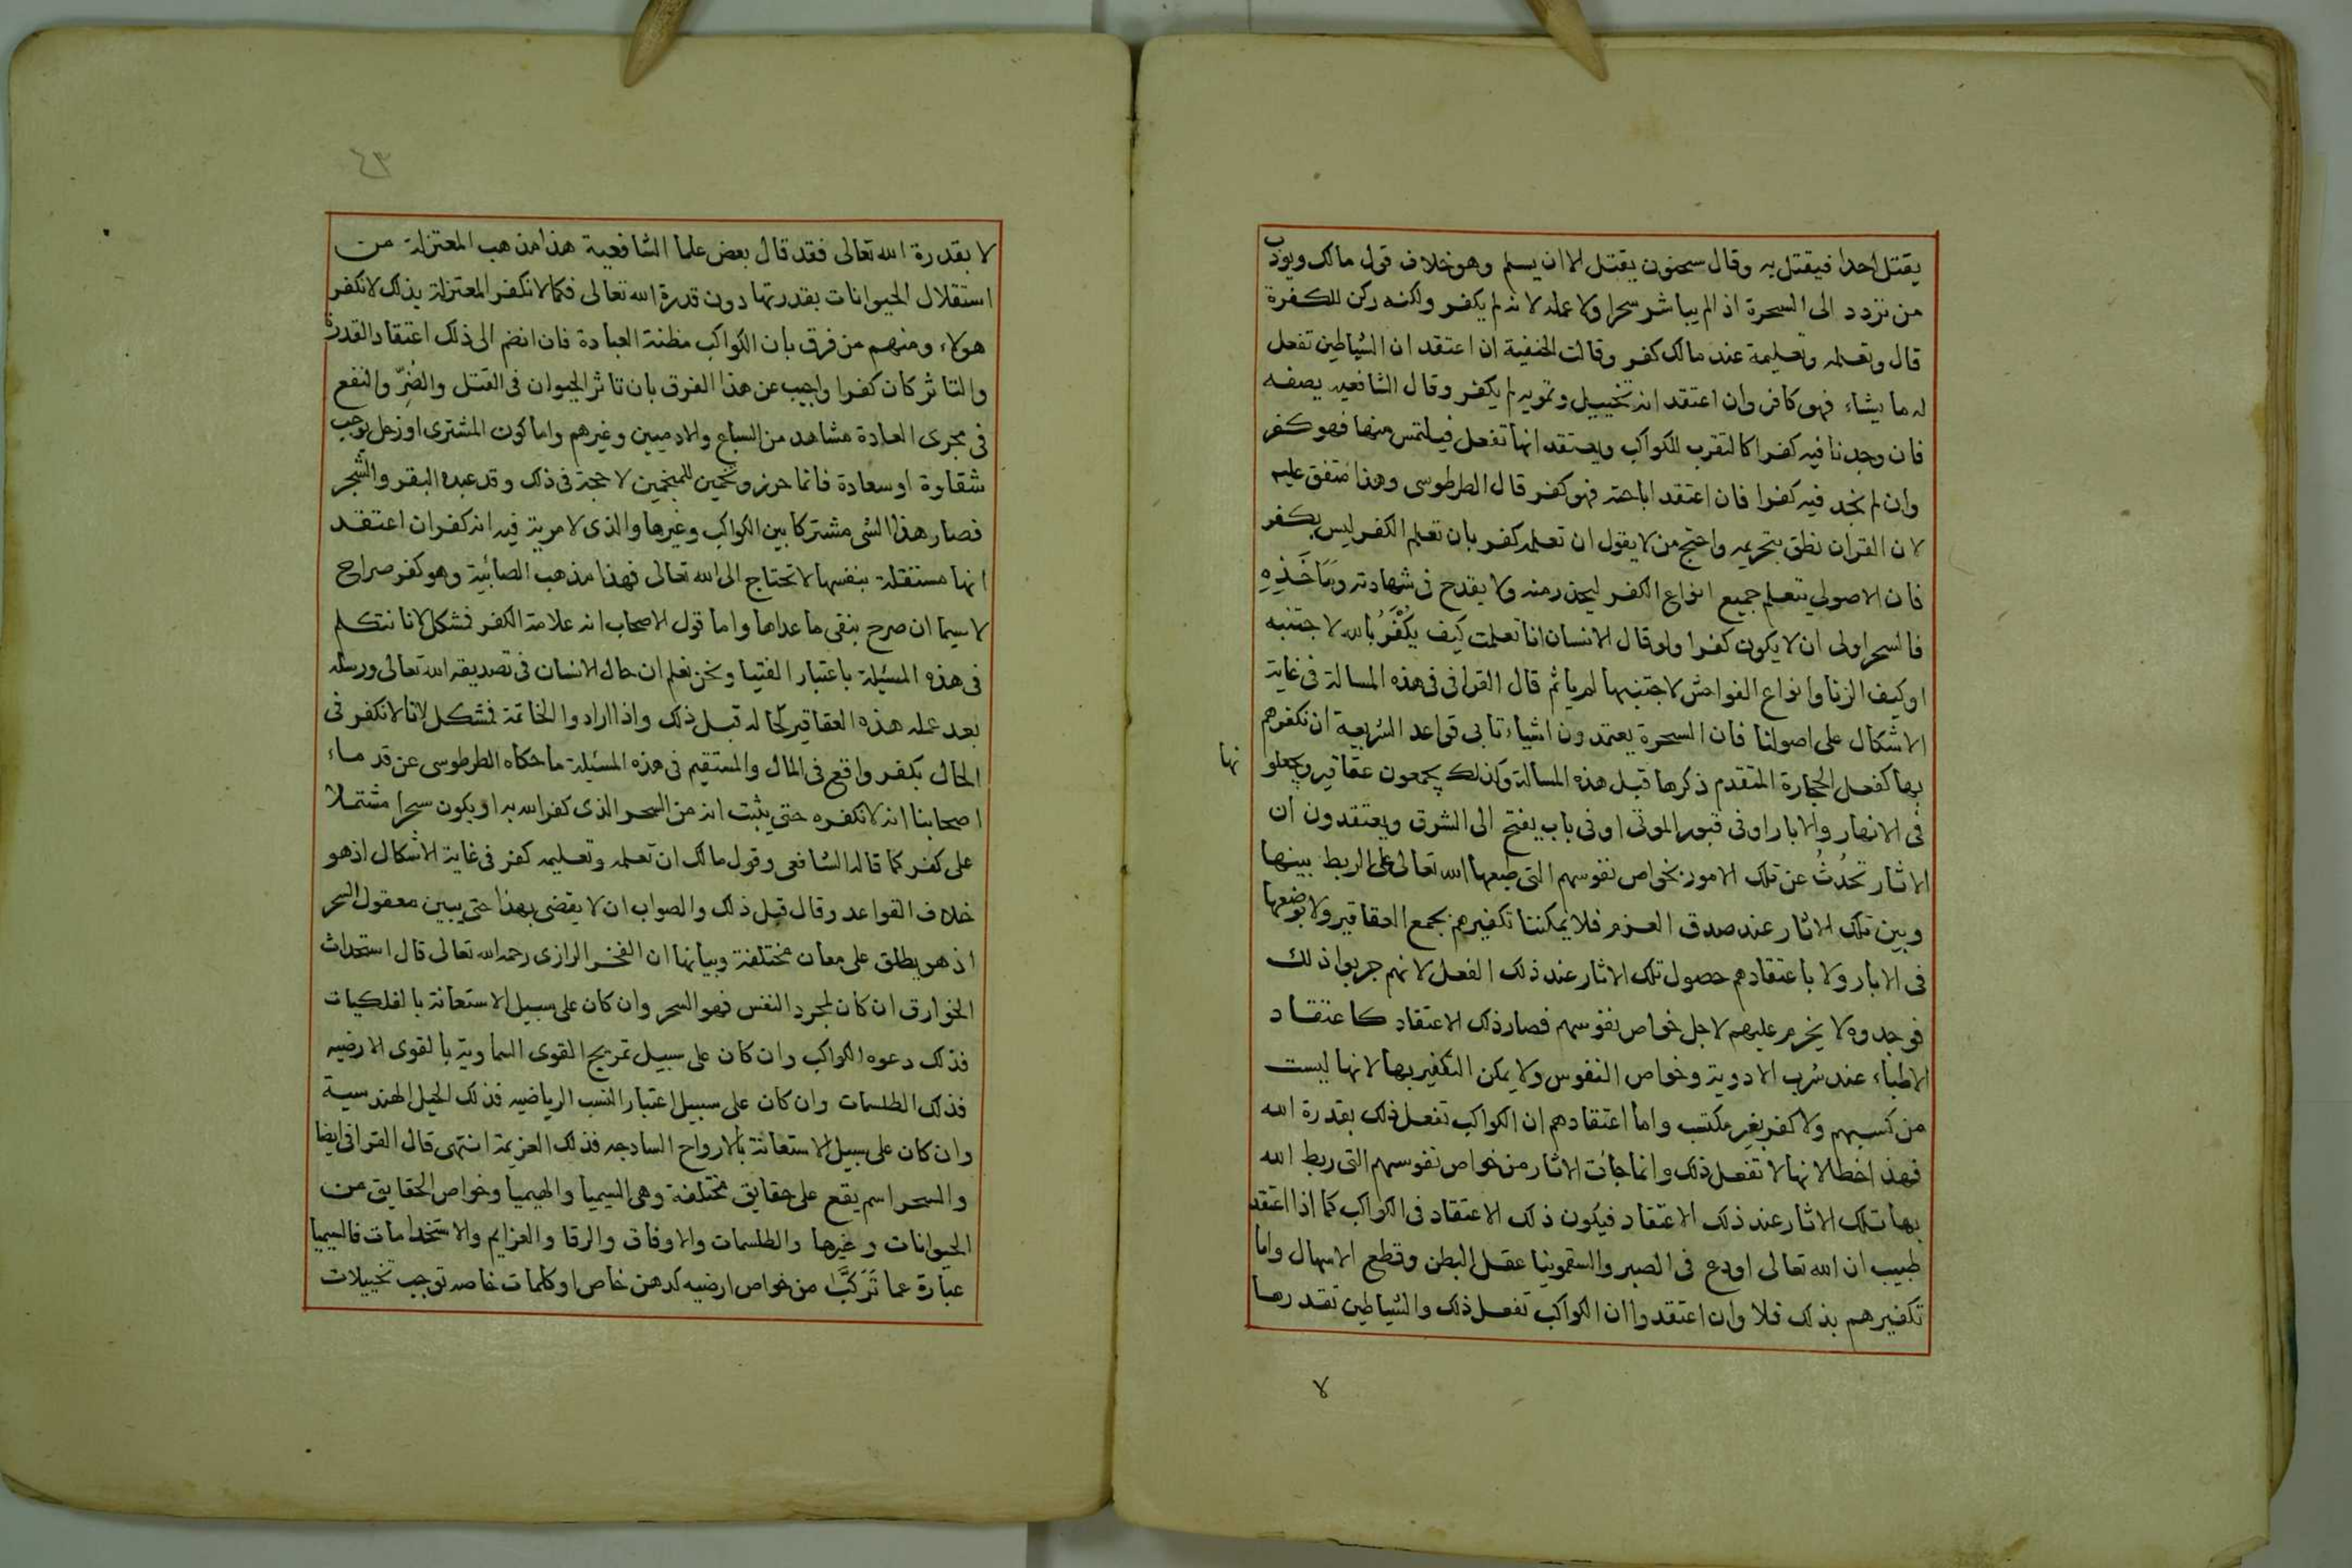 يقتل احدا فيقتل به وقال سحنون يقتل الا ان يسلم وهو خلاف قول مالك ويودب
من تردد الى السحرة اذ الم يباشر سحرا ولا عمله لانه لم يكفر ولكنه ركن للكفرة
قال وتعلمه وتعليمة عند مالك كفر وقالت الحنفية ان اعتقد ان الشياطين تفعل
له ما يشاء فهو كافر وان اعتقد انه تخييل وتمويه لم يكفر وقال الشافعيه يصفه
فان وجدنا فيه كفرا كالتقرب للكواكب ويعتقد انها تفعل فيلتمس منها فهو كفر
وان لم نجد فيه كفرا فان اعتقد اباحته فهو كفر قال الطرطوسى وهذا متفق عليه
لان القران نطق بتحريمه واحتج من لا يقول ان تعلمه كفر بان تعلم الكفر ليس بكفر
فان الاصولي يتعلم جميع انواع الكفر ليحذر منه ولا يقدح فى شهادته ومَاخَذِهِ
فالسحر اولى ان لا يكون كفرا ولو قال الانسان انا تعلمت كيف يُكْفَرُ بالله لاجتنبه
او كيف الزنا وانواع الفواحش لاجتنبها لم ياثم قال القرافى فى هذه المسالة فى غاية
الاشكال على اصولنا فان السحرة يعتمدون اشياء تابى قواعد الشريعة ان نكفرهم
بها كفعل الحجارة المتقدم ذكرها قبل هذه المسالة وكذلك يجمعون عقاقير ويجعلو
نها
فى الانهار والابار او فى قبور الموتى او فى باب يفتح الى الشرق ويعتقدون ان
الاثار تحْدُثُ عن تلك الامور بخواص نفوسهم التى طبعها الله تعالى على الربط بينها
وبين تلك الاثار عند صدق العزم فلا يمكننا تكفيرهم بجمع العقاقير ولا بوضعها
فى الابار ولا باعتقادهم حصول تلك الاثار عند ذلك الفعل لانهم جربوا ذلك
فوجدوه لا يخرم عليهم لاجل خواص نفوسهم فصار ذلك الاعتقاد كاعتقاد
الاطباء عند شرب الادوية وخواص النفوس ولا يمكن التكفير بها لانها ليست
من كسبهم ولا كفر بغير مكتسب واما اعتقادهم ان الكواكب تفعل ذلك بقدرة الله
فهذا خطا لانها لا تفعل ذلك وانما جائت الاثار من خواص نفوسهم التى ربط الله
بها تلك الاثار عند ذلك الاعتقاد فيكون ذلك الاعتقاد فى الكواكب كما اذا اعتقد
طبيب ان الله تعالى اودع فى الصبر والسقمونيا عقل البطن وقطع الاسهال واما
تكفيرهم بذلك فلا وان اعتقدوا ان الكواكب تفعل ذلك والشياطين تقدرها
لا
٤٣
لا بقدرة الله تعالى فقد قال بعض علما الشافعية هذا مذهب المعتزلة من
استقلال الحيوانات بقدرتها دون قدرة الله تعالى فكما لا نكفر المعتزلة بذلك لا نكفر
هولاء ومنهم من فرق بان الكواكب مظنة العبادة فان انضم الى ذلك اعتقاد القدرة
والتاثر كان كفرا واجيب عن هذا الفرق بان تاثر الحيوان فى القتل والضرّ والنفع
فى مجرى العادة مشاهد من السباع والادميين وغيرهم واما كون المشترى او زحل يوجب
شقاوة او سعادة فانما حرز وتخمين للمنجمين لا حجة فى ذلك وقد عبده البقر والشجر
فصار هذا الشى مشتركا بين الكواكب وغيرها والذى لا مرية فيه انه كفر ان اعتقد
انها مستقلة بنفسها لا تحتاج الى الله تعالى فهذا مذهب الصائبة وهو كفر صراح
لا سيما ان صرح بنفى ما عداها واما قول الاصحاب انه علامة الكفر فشكل لانا نتكلم
فى هذه المسئلة باعتبار الفتيا ونحن نعلم ان حال الانسان فى تصديقه الله تعالى ورسله
بعد عمله هذه العقاقير كحاله قبل ذلك واذا ارادوا الخاتمة فمشكل لانا لا نكفر فى
الحال بكفر واقع فى المال والمستقيم فى هذه المسئلة ما حكاه الطرطوسى عن قدماء
اصحابنا انه لا نكفره حتى يثبت انه من السحر الذى كفر الله به او يكون سحرا مشتملا
على كفر كما قاله الشافعى وقول مالك ان تعلمه وتعليمه كفر فى غاية الاشكال اذ هو
خلاف القواعد وقال قبل ذلك والصواب ان لا يقضى بهذا حتى يبين معقول السحر
اذ هو يطلق على معان مختلفة وبيانها ان الفخر الرازى رحمه الله تعالى قال استحداث
الخوارق ان كان لمجرد النفس فهو السحر وان كان على سبيل الاستعانة بالفلكيات
فذلك دعوه الكواكب وان كان على سبيل تمريج القوى السماوية بالقوى الارضيه
فذلك الطلسمات وان كان على سبيل اعتبار النسب الرياضيه فذلك الحيل الهندسية
وان كان على سبيل الاستعانة بالارواح السادجه فذلك العزيمة انتهى قال القرافى ايضا
والسحر اسم يقع على حقايق مختلفة وهى السيميا والهيميا وخواص الحقايق من
الحيوانات وغيرها والطلسمات والاوفاق والرقا والعزايم والاستخدامات فالسيميا
عبارة عما تَرَكَّبَ من خواص ارضيه كدهن خاص او كلمات خاصه توجب تخييلات